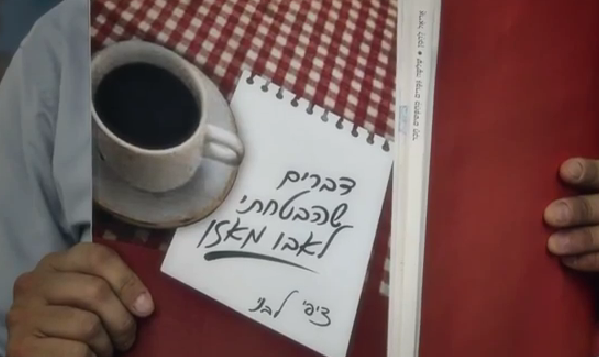 דברים
שהבטחתי
לאבו מאזן
ציפי לבני